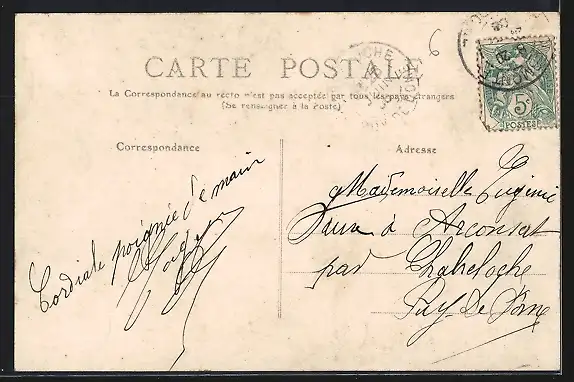 6
CARTE POSTALE
La Correspondance au recto n'est pas acceptée par tous les pays étrangers
(Se renseigner à la Poste)
Correspondance
Cordiale poignée de main
Adresse
Mademoiselle Eugénie
à Arconsat
par Chabeloche
Puy-De Dôme
5c
POSTES